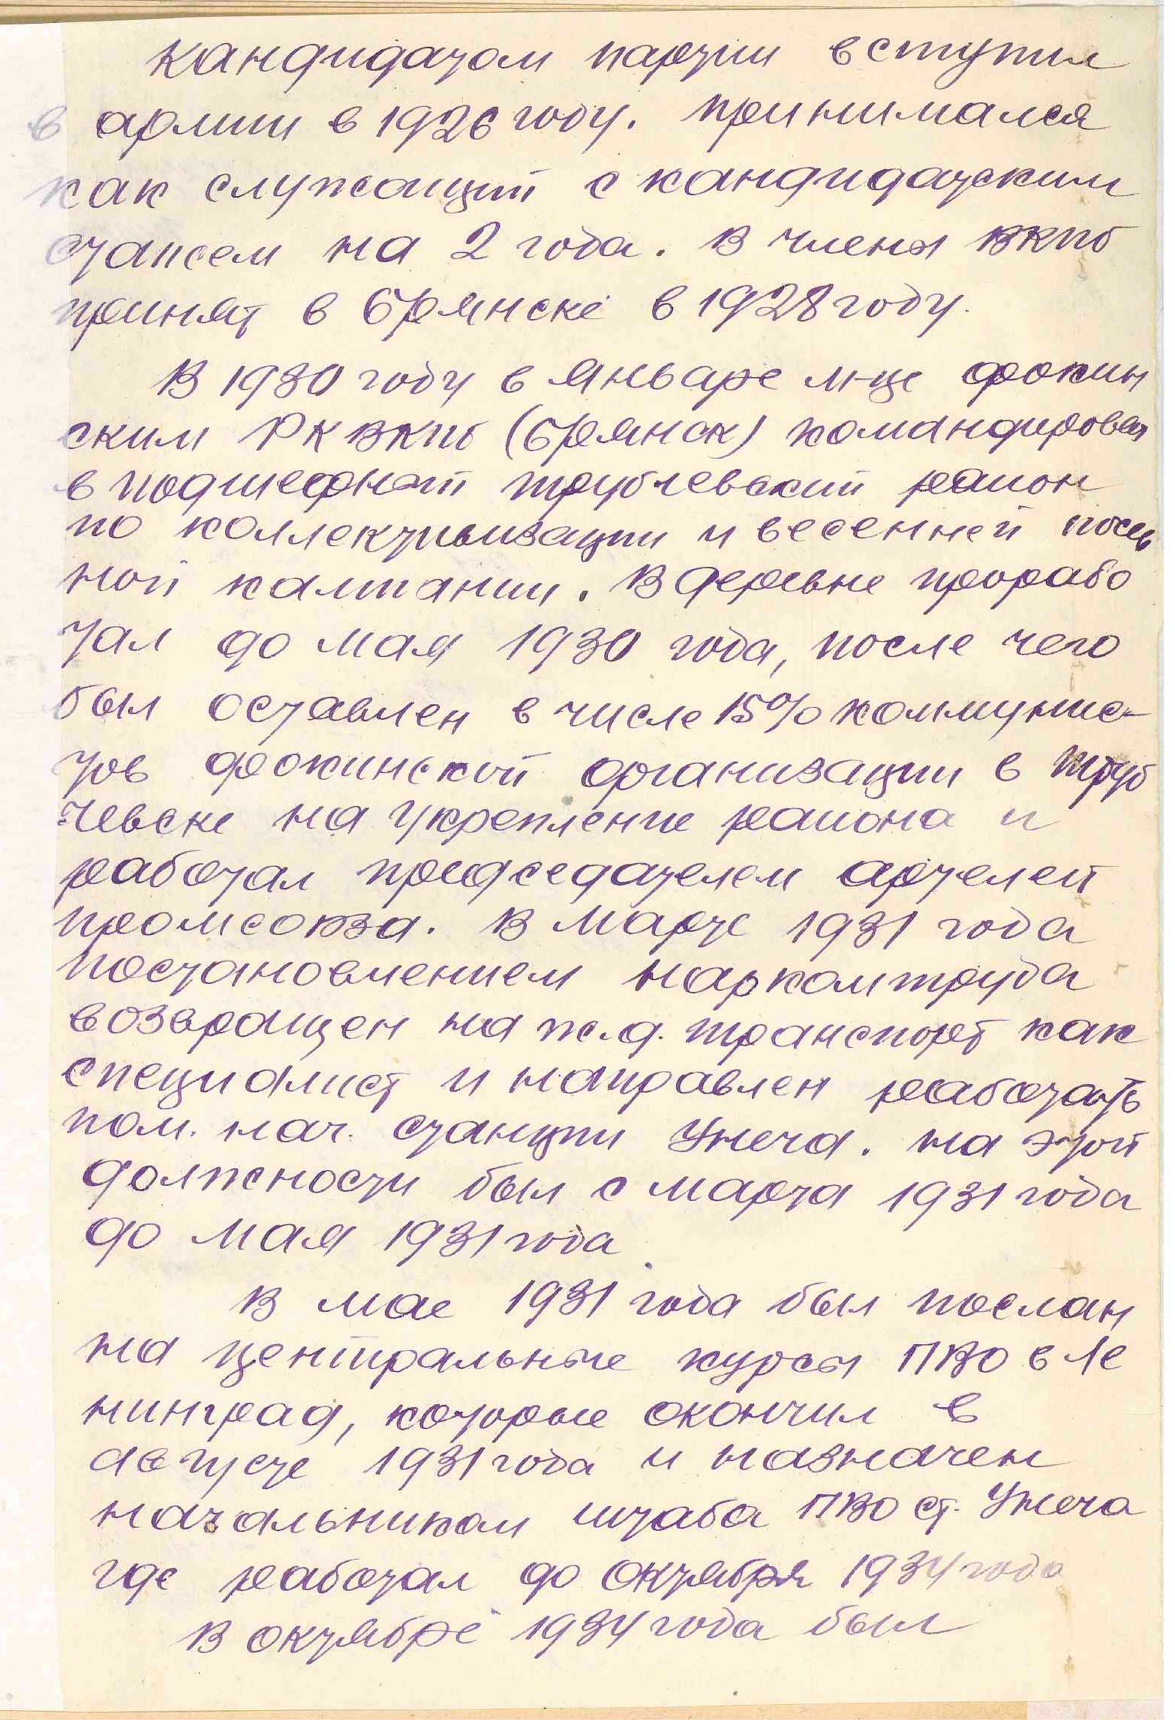 Кандидатом партии вступил
в армии в 1926 году. Принимался
как служащий с кандидатским
стажем на 2 года. В члены ВКПб
принят в Брянске в 1928 году.
В 1930 году в январе м-це Фокин
ским РК ВКПб (Брянск) командирован
в подшефный Трубчевский район
по коллективизации и весенней посев
ной кампании. В деревне прорабо
тал до мая 1930 года, после чего
был оставлен в числе 15% коммунис-
тов Фокинской организации в Труб
чевске на укрепление района и
работал председателем артелей
Промсоюза. В марте 1931 года
постановлением Наркомтруда
возвращен на ж.д. транспорт как
специалист и направлен работать
пом. нач. станции Унеча. На этой
должности был с марта 1931 года
до мая 1931 года
В мае 1931 года был послан
на центральные курсы ПВО в Ле
нинград, которые окончил в
августе 1931 года и назначен
начальником штаба ПВО ст. Унеча
где работал до октября 1934 года
В октябре 1934 года был